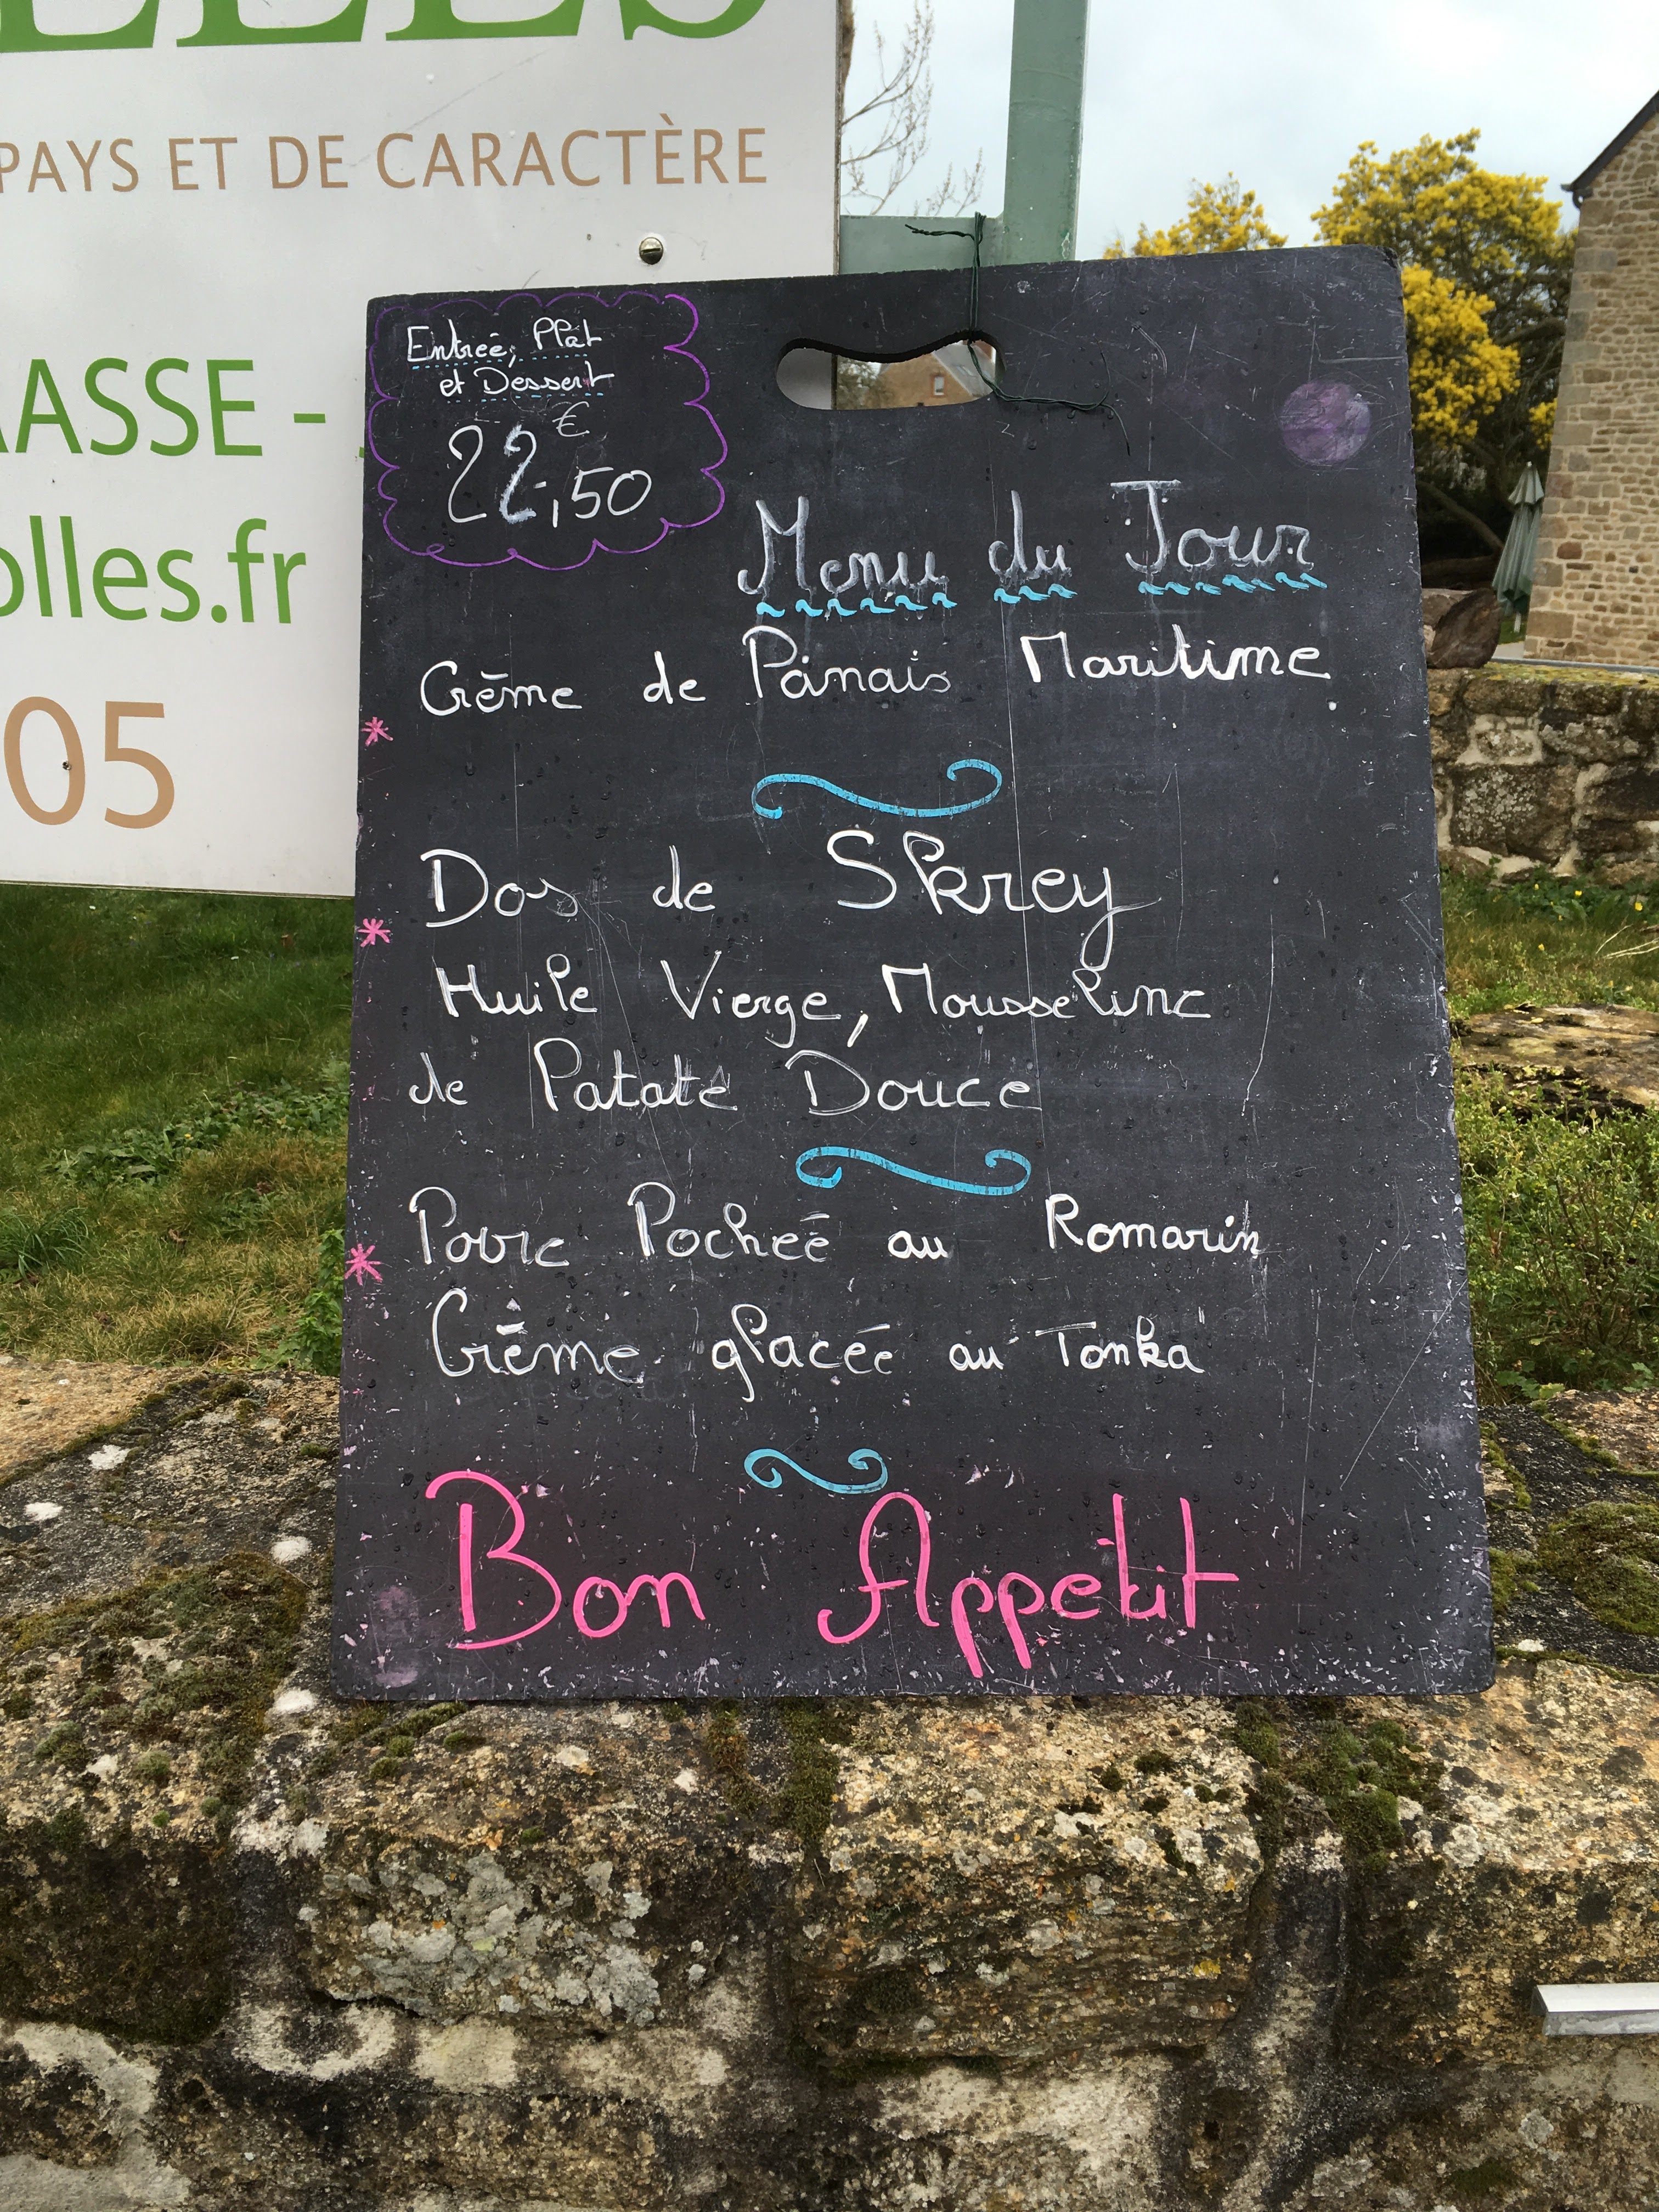 PAYS ET DE CARACTÈRE
olles.fr
05
Entreé, Plat
et Dessert
22,50 €
Menu du Jour
Crème de Panais Maritime
Dos de Skrey
Huile Vierge, Mousseline
de Patate Douce
Poire Pocheé au Romarin
Crème glacée au Tonka
Bon Appetit